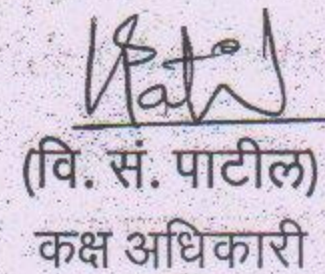 (वि. सं. पाटील)
कक्ष अधिकारी